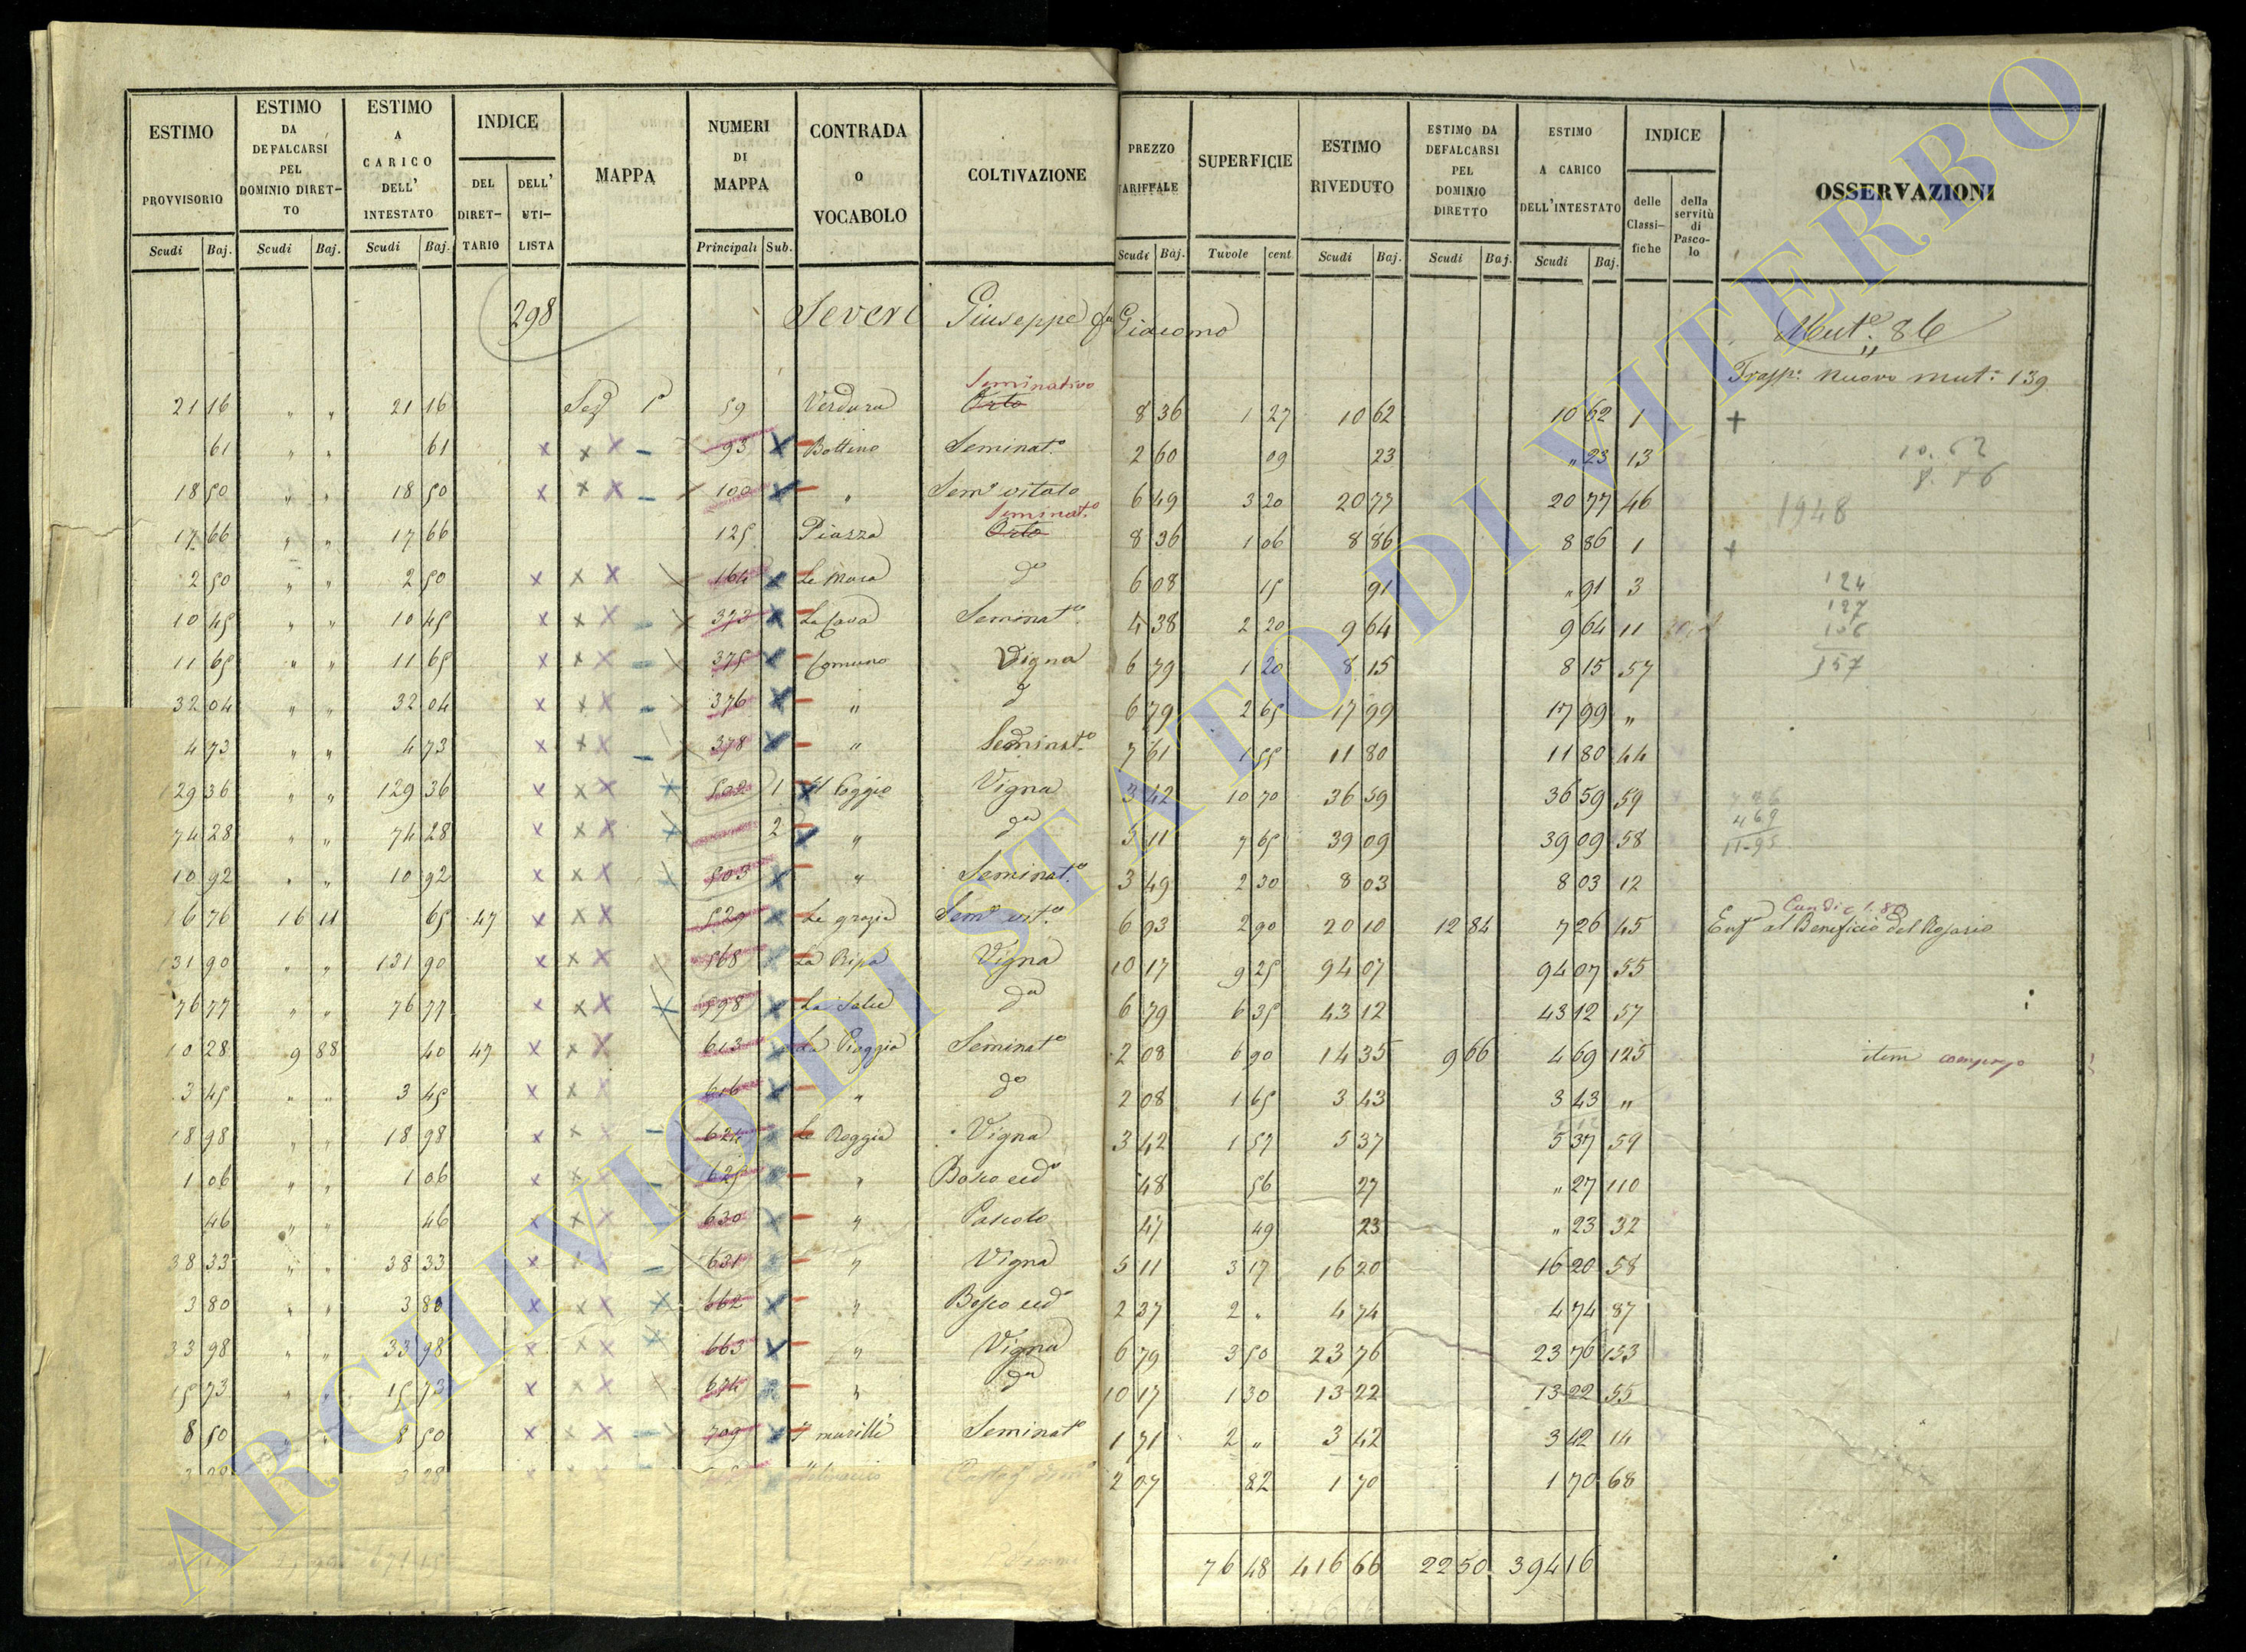 ESTIMO PROVVISORIO Scudi Baj.
ESTIMO DA DEFALCARSI PEL DOMINIO DIRET-TO Scudi Baj.
ESTIMO A CARICO DELL' INTESTATO Scudi Baj.
INDICE DEL DIRET-TARIO DELL' UTI-LISTA
MAPPA
NUMERI DI MAPPA Principali Sub.
CONTRADA O VOCABOLO
COLTIVAZIONE
PREZZO TARIFFALE Scudi Baj.
SUPERFICIE Tavole cent
ESTIMO RIVEDUTO Scudi Baj.
ESTIMO DA DEFALCARSI PEL DOMINIO DIRETTO Scudi Baj.
ESTIMO A CARICO DELL'INTESTATO Scudi Baj.
INDICE delle Classi-fiche della servitù di Pasco-lo
OSSERVAZIONI
298 Severi Giuseppe fu Giacomo Mut.e 86
Trasp.o nuovo mut.e 139
Seminativo
21 16 " " 21 16 59 Verdura Orto 8 36 1 27 10 62 10 62 1 +
61 " " 61 93 Bottino Seminat.o 2 60 09 23 " 23 13 10.62
18 50 " " 18 50 100 " Sem.o vitato 6 49 3 20 20 77 20 77 46 8.86
Seminat.o 1948
17 66 " " 17 66 125 Piazza Orto 8 36 1 06 8 86 8 86 1 +
2 50 " " 2 50 164 Le Mura d.o 6 08 15 91 " 91 3 124
127
10 45 " " 10 45 373 La Cava Seminat.o 4 38 2 20 9 64 9 64 11 106
11 65 " " 11 65 375 Comuno Vigna 6 79 1 20 8 15 8 15 57 157
32 04 " " 32 04 376 " d 6 79 2 65 17 99 17 99 "
4 73 " " 4 73 378 " Seminat.o 7 61 1 55 11 80 11 80 44
129 36 " " 129 36 502 1 Il Poggio Vigna 3 42 10 70 36 59 36 59 59 726
469
74 28 " " 74 28 2 " d.a 5 11 7 65 39 09 39 09 58 11-95
10 92 " " 10 92 503 " Seminat.o 3 49 2 30 8 03 8 03 12
16 76 16 11 65 47 529 Le grazie Sem.o vit.o 6 93 2 90 20 10 12 84 7 26 45 Enf.a al Beneficio del Rosario
131 90 " " 131 90 568 La Ripa Vigna 10 17 9 25 94 07 94 07 55
76 77 " " 76 77 598 d.a 6 79 6 35 43 12 43 12 57
10 28 9 88 40 47 613 La Piaggia Seminat.o 2 08 6 90 14 35 9 66 4 69 125 item
3 45 " " 3 45 616 " d.o 2 08 1 65 3 43 3 43 "
18 98 " " 18 98 624 Vigna 3 42 1 57 5 37 5 37 59
1 06 " " 1 06 625 " Bosco ced.o 48 56 27 " 27 110
46 " " 46 630 " Pascolo 47 49 23 " 23 32
38 33 " " 38 33 631 " Vigna 5 11 3 17 16 20 16 20 58
3 80 " " 3 80 662 " Bosco ced.o 2 37 2 " 4 74 4 74 87
33 98 " " 33 98 663 " Vigna 6 79 3 50 23 76 23 76 133
15 73 " " 15 73 674 " d.a 10 17 1 30 13 22 13 22 55
8 50 " " 8 50 709 Seminat.o 1 71 2 " 3 42 3 42 14
3 28 3 28 2 07 82 1 70 1 70 68
76 48 416 66 22 50 394 16
ARCHIVIO DI STATO DI VITERBO